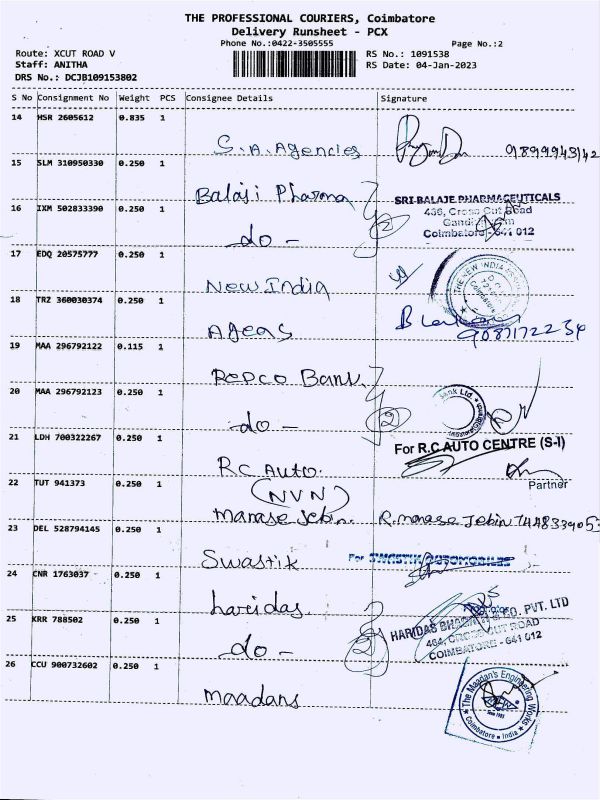 THE PROFESSIONAL COURIERS, Coimbatore
Delivery Runsheet - PCX
Phone No.:0422-3505555
Page No.:2
Route: XCUT ROAD V
RS No.: 1091538
Staff: ANITHA
RS Date: 04-Jan-2023
DRS No.: DCJB109153802
S No Consignment No Weight PCS Consignee Details Signature
14 HSR 2605612 0.835 1
S.A. Agencies 9899943142
15 SLM 310950330 0.250 1
Balaji Pharma
SRI BALAJE PHARMACEUTICALS
436, Cross Cut Road
16 IXM 502833390 0.250 1
-do- 2
Coimbatore - 641 012
17 EDQ 20575777 0.250 1
New India
THE NEW INDIA
18 TRZ 360030374 0.250 1
Ageas
9087172234
19 MAA 296792122 0.115 1
Repco Bank
20 MAA 296792123 0.250 1
-do- 2
Bank Ltd.
21 LDH 700322267 0.250 1
For R.C AUTO CENTRE (S-I)
RC Auto.
Partner
22 TUT 941373 0.250 1
(NVN)
Manase Jebin. R. Manase Jebin
23 DEL 528794145 0.250 1
Swastik
For SWASTIK AUTOMOBILES
24 CNR 1763037 0.250 1
haridas.
HARIDAS & CO. PVT. LTD
25 KRR 788502 0.250 1
464, CROSS CUT ROAD
COIMBATORE - 641 012
-do- 2
26 CCU 900732602 0.250 1
maadans
The Maadan's Engineering Works
Coimbatore • India